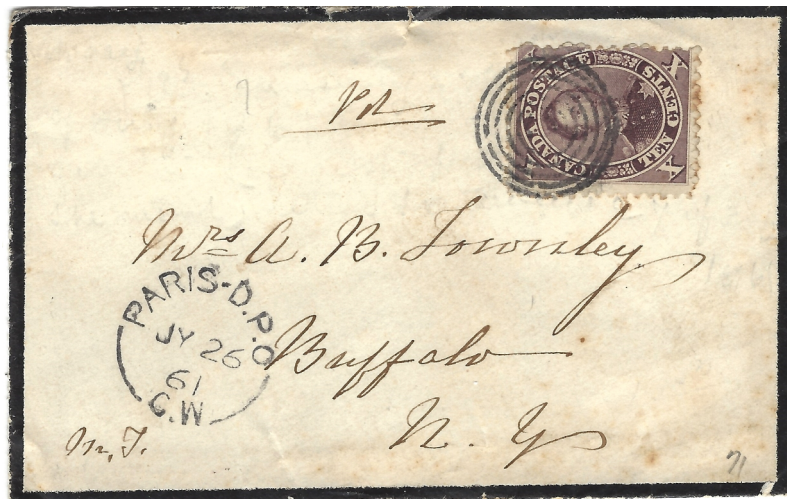 Pd
X CANADA POSTAGE TEN CENTS X
Mrs A. B. Townley
PARIS-D.P.O
JY 26
61
C.W
Buffalo
N. Y
m. T.
71